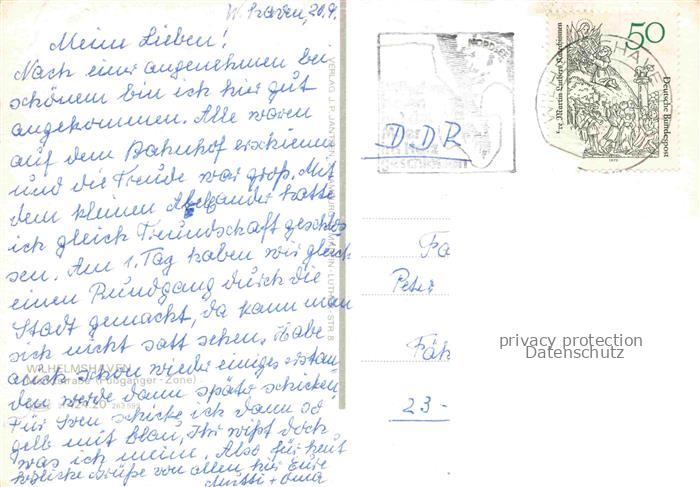 W. haven, 20.9.
Meine Lieben!
Nach einer angenehmen bei
schönem bin ich hier gut
angekommen. Alle waren
auf dem Bahnhof erschienen
und die Freude war groß. Mit
dem kleinen hatte
ich gleich Freundschaft geschlos
sen. Am 1. Tag haben wir gleich
einen Rundgang durch die
Stadt gemacht, da kann man
sich nicht satt sehen. Habe
auch schon wieder einiges erstan
den werde dann später schicken,
Für Sven schicke ich dann so
gelb mit blau, Ihr wißt doch
was ich meine. Also für heut
herzliche Grüße von allen hier Eure
Mutti + Oma
WILHELMSHAVEN
(Fußgänger-Zone)
VERLAG J.P. JANTZEN, HAMBURG MARTIN-LUTHER-STR 8
NORDSEE
DDR
50
Deutsche Bundespost
Martin Luthers Katechismen
1979
Fa
Peter
Fäh
23-
privacy protection
Datenschutz